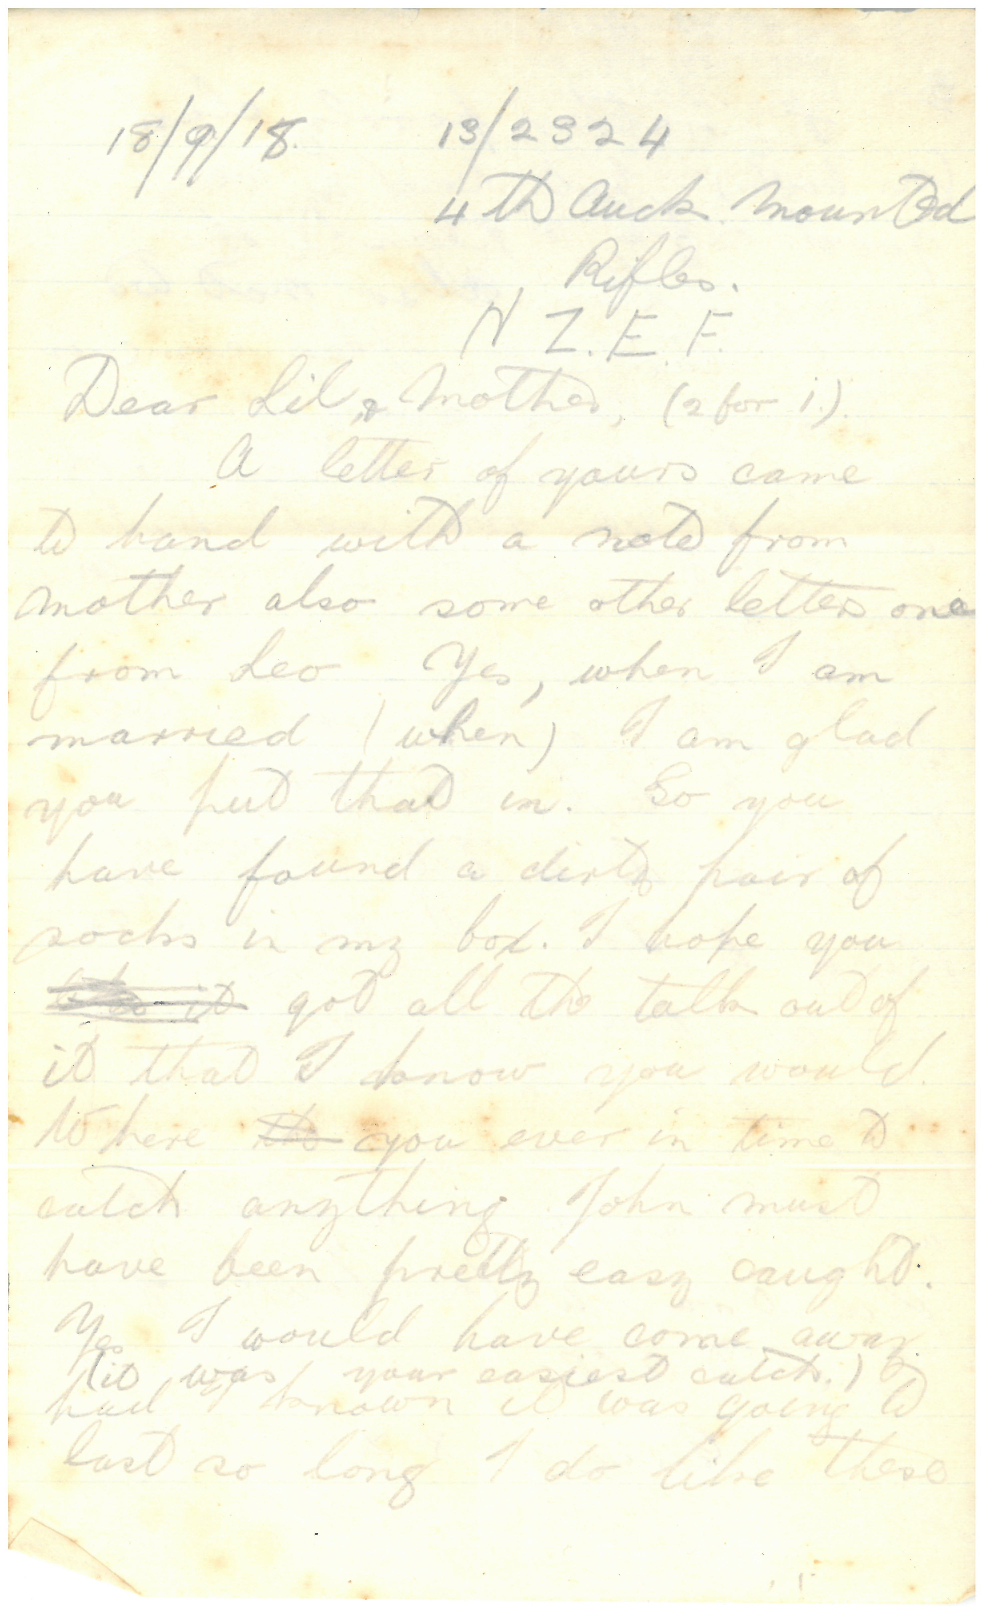 18/9/18. 13/2324
4th Auck Mounted
Rifles.
N Z. E. F.
Dear Lil, & Mother, (2 for 1.)
A letter of yours came
to hand with a note from
Mother also some other letters one
from Leo Yes, when I am
married (when) I am glad
you put that in. So you
have found a dirty pair of
socks in my box. I hope you
got all the talk out of
it that I know you would.
Where the you ever in time to
catch anything John must
have been pretty easy caught.
Yes I would have come away
(it was your easiest catch.)
had I known it was going to
last so long I do like these